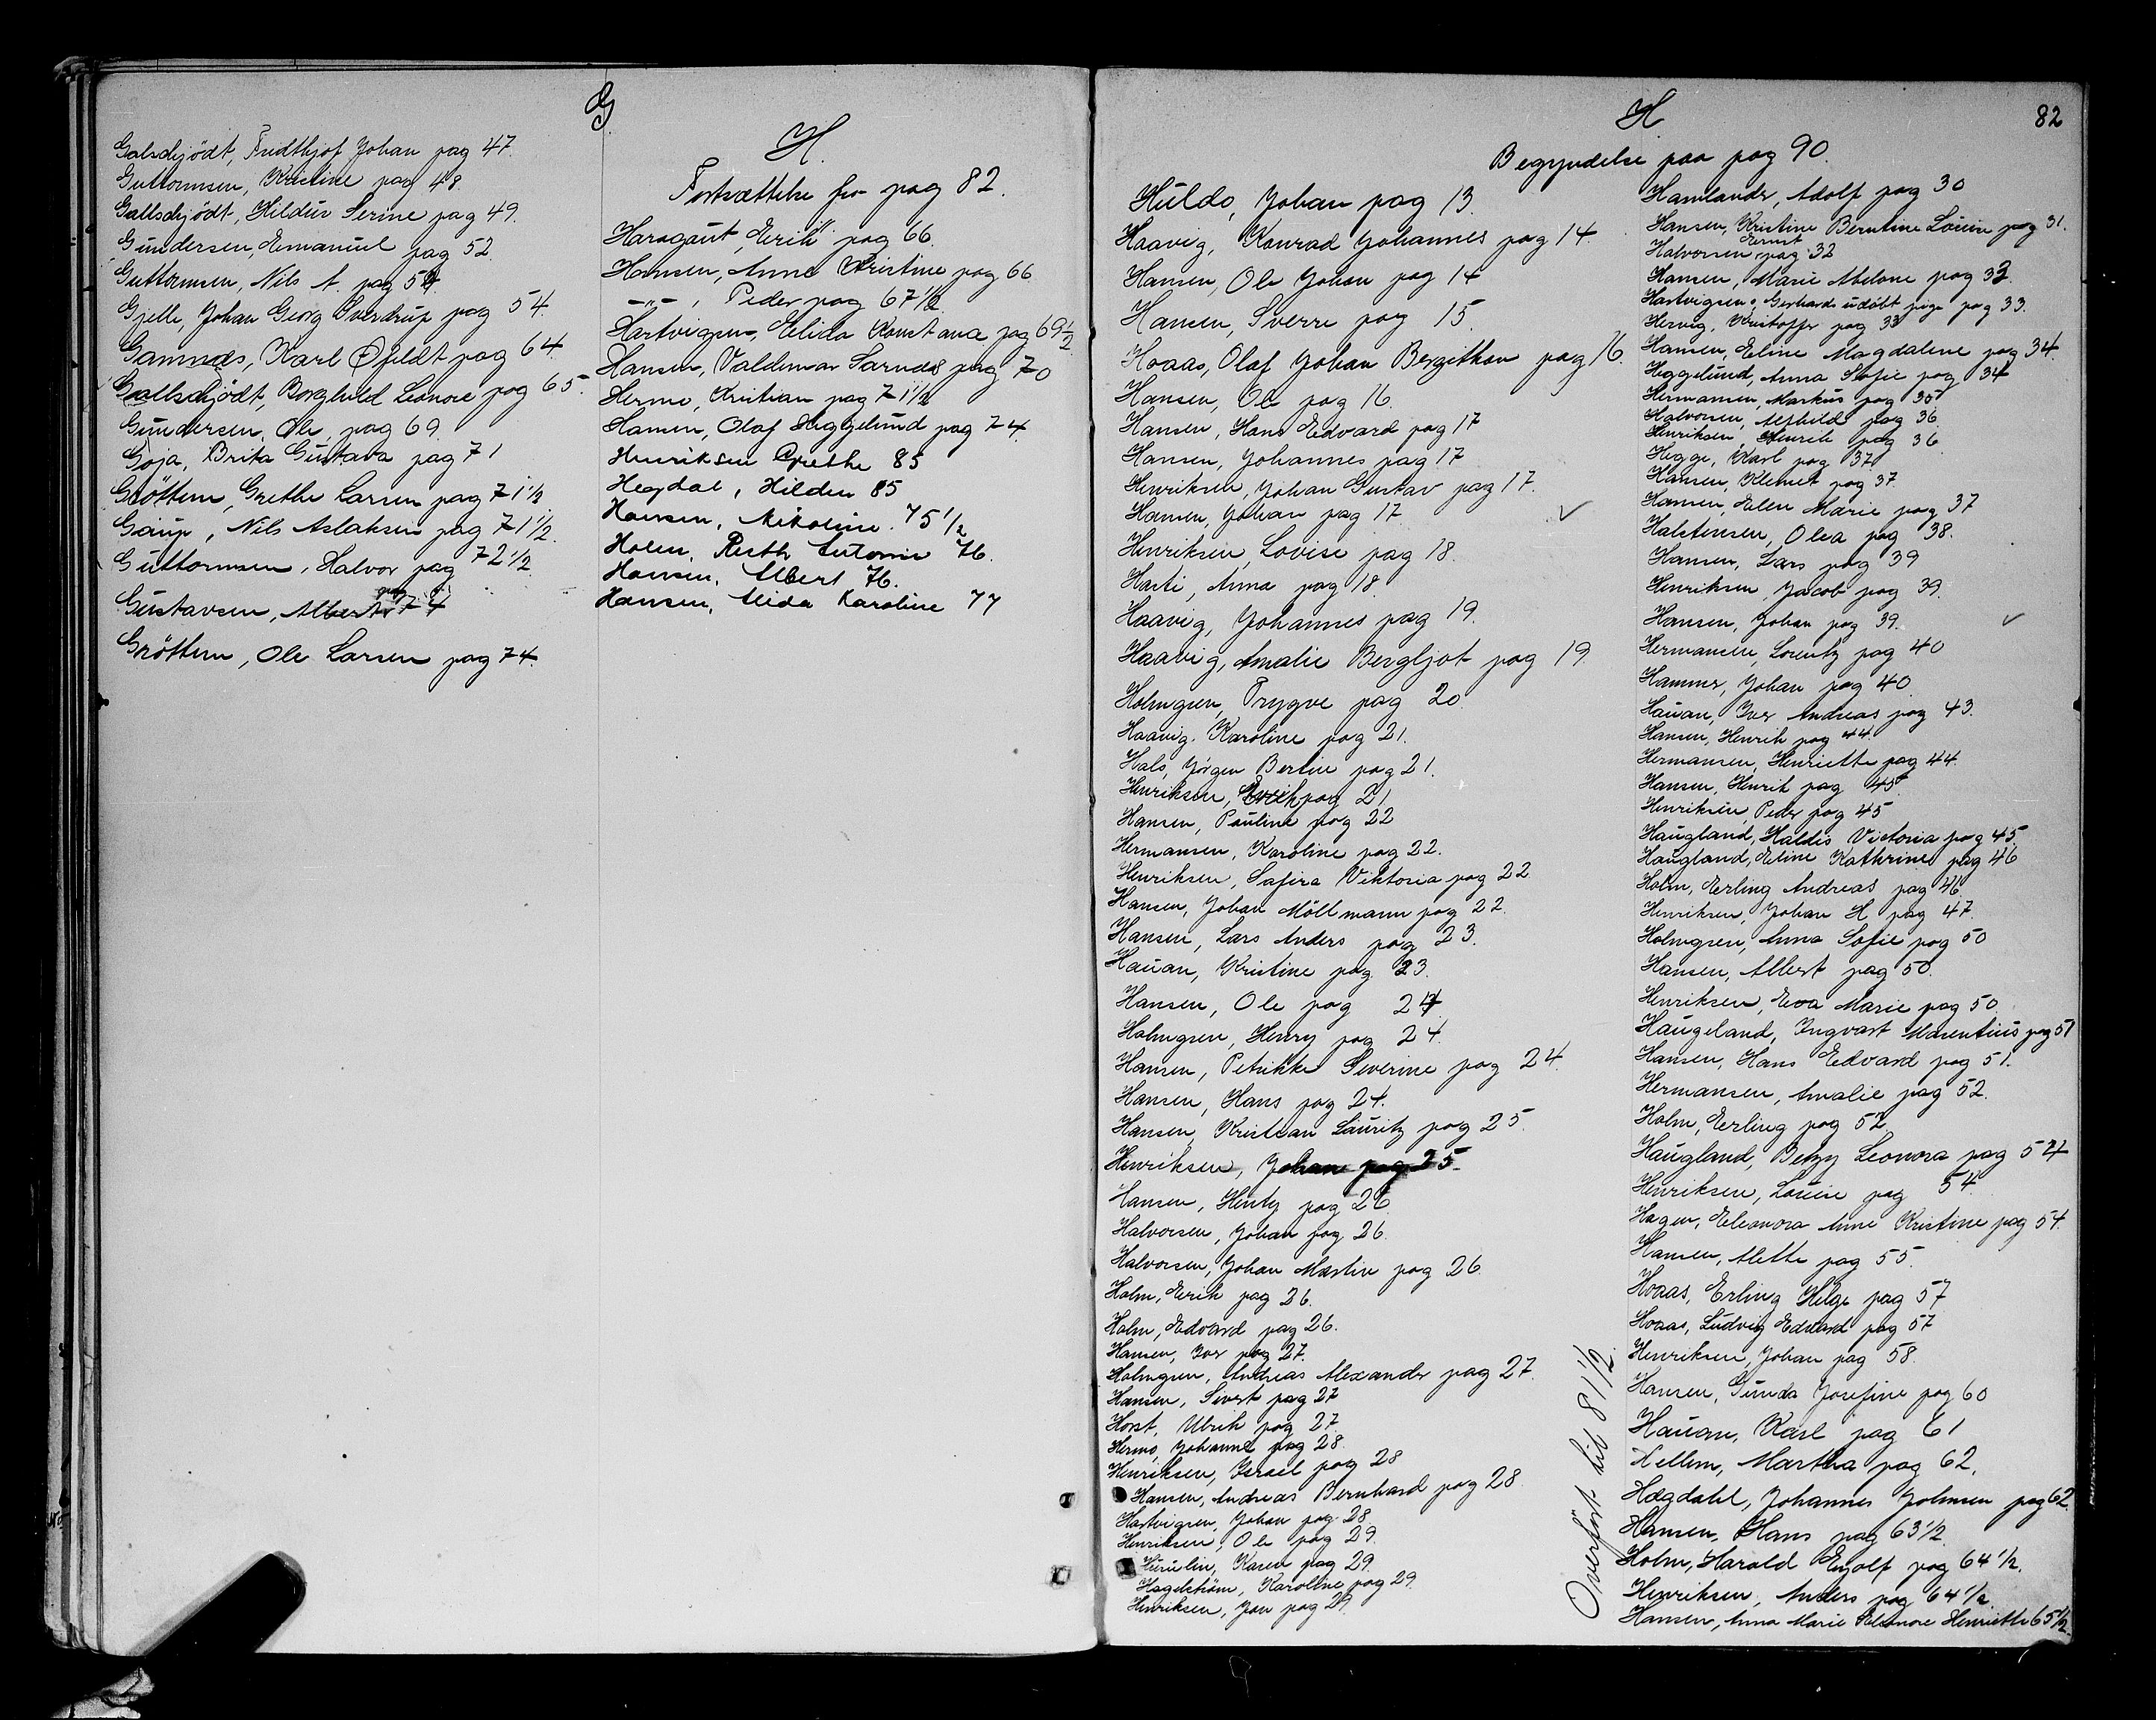 G
Galschjödt, Fridthjof Johan pag 47.
Guttormsen, Kristine pag 48
Gallschjödt, Hildur Serine pag 49.
Gundersen, Emanuel pag 52
Guttormsen, Nils A. pag 54.
Gjelle, Johan Georg Sverdrup pag 54.
Gamnæs, Karl Øfeldt pag 64.
Gallschjödt, Borghild Leonore pag 65.
Gundersen, Ole, pag 69
Goja, Brita Gustava pag 71
Gröttem, Grethe Larsen pag 71 1/2
Gaup, Nils Aslaksen pag 71 1/2.
Guttormsen, Halvor pag 72 1/2
Gustavsen, Albert pag 74
Gröttem, Ole Larsen pag 74.
H.
Fortsættelse fra pag 82.
Haragaut, Erik pag 66.
Hansen, Anna Kristine pag 66
-"- , Peder pag 67 1/2
Hartvigsen, Elida Konstance pag 69 1/2
Hansen, Valdemar Sarnæs pag 70
Hermo, Kristian pag 71 1/2
Hansen, Olaf Heggelund pag 74.
Henriksen Grethe 85
Hegdal, Hilden 85
Hansen, Nikoline. 75 1/2
Holm, Ruth Antonie 76.
Hansen, Albert 76.
Hansen, Alida Karoline 77
H
82
Begyndelse paa pag 90.
Huldo, Johan pag 13.
Haavig, Konrad Johannes pag 14.
Hansen, Ole Johan pag 14
Hansen, Sverre pag 15.
Hoaas, Olaf Johan Bergithon pag 16.
Hansen, Ole pag 16.
Hansen, Hans Edvard pag 17
Hansen, Johannes pag 17
Henriksen, Johan Gustav pag 17.
Hansen, Johan pag 17 ✓
Henriksen, Lovise pag 18.
Harti, Anna pag 18
Haavig, Johannes pag 19.
Haavig, Amalie Bergljot pag 19.
Holmgren, Trygve pag 20
Haavig, Karoline pag 21.
Hals, Jörgen Bertin pag 21.
Henriksen, Erik pag 21
Hansen, Pauline pag 22
Hermansen, Karoline pag 22.
Henriksen, Safira Viktoria pag 22
Hansen, Johan Möllmann pag 22.
Hansen, Lars Anders pag 23.
Hauan, Kristine pag 23.
Hansen, Ole pag 24
Holmgren, Henry pag 24.
Hansen, Petrikke Severine pag 24.
Hansen, Hans pag 24.
Hansen, Kristian Lauritz pag 25.
Henriksen, Johan pag 25.
Hansen, Hentz pag 26
Halvorsen, Johan pag 26.
Halvorsen, Johan Martin pag 26.
Holm, Erik pag 26.
Holm, Edvard pag 26.
Hansen, Iver pag 27.
Holmgren, Andreas Alexander pag 27.
Hansen, Sivert pag 27
Horst, Ulrik pag 27.
Hermo, Johanne pag 28.
Henriksen, Israel pag 28
Hansen, Andreas Bernhard pag 28
Hartvigsen, Johan pag 28.
Henriksen, Ole pag 29.
Karen pag 29.
Hagelström, Karoline pag 29.
Henriksen, Jon pag 29.
Overfört til 81 1/2.
Hamlander, Adolf pag 30
Hansen, Kristine Berntine Louise pag 31.
Halvorsen, Ernst pag 32
Hansen, Marie Abelone pag 33.
Hartvigsen, Gerhards udöbt pige pag 33.
Hervig, Kristoffer pag 33
Hansen, Eline Magdalene pag 34.
Heggelund, Anna Sofie pag 34
Hermansen, Markus pag 35
Halvorsen, Alfhild pag 36.
Henriksen, Henrik pag 36
Hegge, Karl pag 37
Hansen, Klemet pag 37.
Hansen, Elen Marie pag 37
Halstensen, Olea pag 38.
Hansen, Lars pag 39
Henriksen, Jacob pag 39.
Hansen, Johan pag 39. ✓
Hermansen, Lorentz pag 40
Hammer, Johan pag 40
Hauan, Iver Andreas pag 43.
Hansen, Henrik pag 44.
Hermansen, Henriette pag 44.
Hansen, Henrik pag 45
Henriksen, Peder pag 45
Haugland, Haldis Victoria pag 45.
Haugland, Eline Kathrine pag 46
Holm, Erling Andreas pag 46.
Henriksen, Johan H pag 47.
Holmgren, Anna Sofie pag 50
Hansen, Albert pag 50.
Henriksen, Eva Marie pag 50.
Haugeland, Ingvart Marentius pag 51
Hansen, Hans Edvard pag 51.
Hermansen, Amalie pag 52.
Holm, Erling pag 52
Haugland, Betzy Leonora pag 54
Henriksen, Louise pag 54.
Hagen, Eleonora Anne Kristine pag 54.
Hansen, Alette pag 55.
Hoaas, Erling Helge pag 57
Hoaas, Ludvig Edvard pag 57
Henriksen, Johan pag 58.
Hansen, Gunda Josefine pag 60
Hauan, Karl pag 61
Hellem, Martha pag 62.
Hægdahl, Johannes Johnsen pag 62.
Hansen, Hans pag 63 1/2.
Holm, Harald Engolf pag 64 1/2.
Henriksen, Anders pag 64 1/2.
Hansen, Anna Marie Eleonore Henriette 65 1/2.